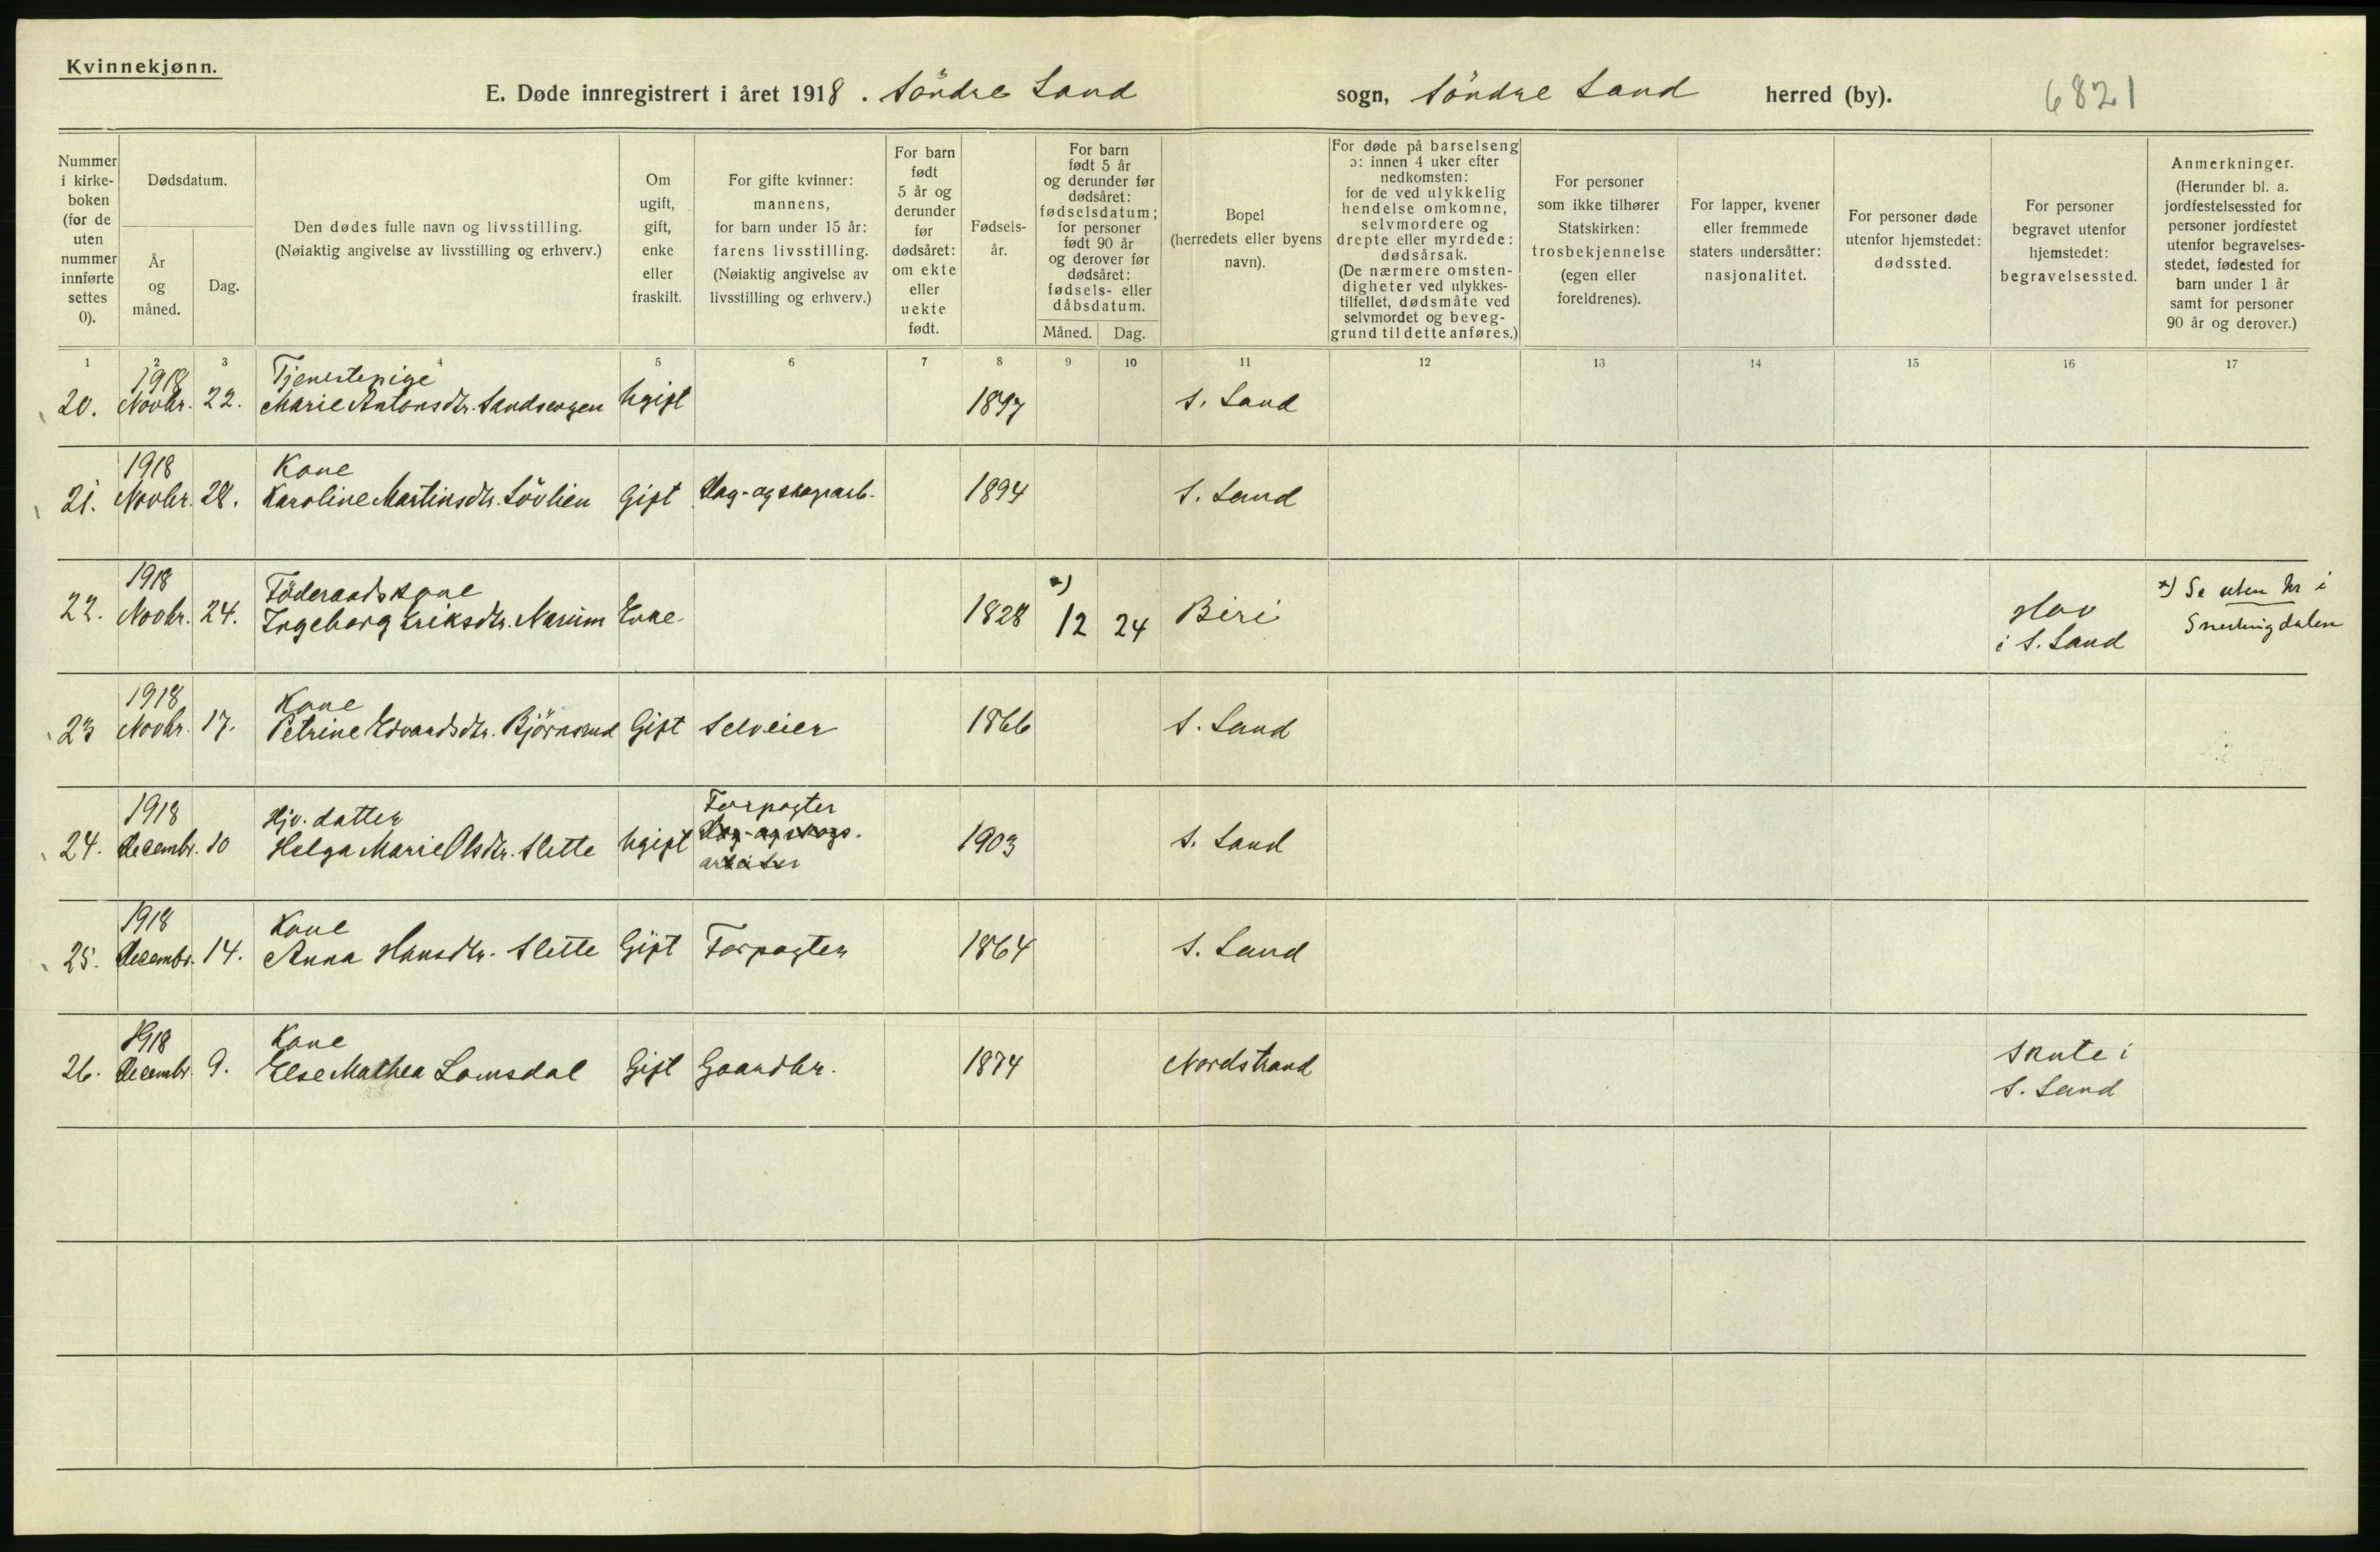 Kvinnekjønn.
E. Døde innregistrert i året 1918. Söndre Land sogn, Söndre Land herred (by). 6821
Nummer i kirke-boken (for de uten nummer innførte settes 0).
Dødsdatum.
År og måned.
Dag.
Den dødes fulle navn og livsstilling.
(Nøiaktig angivelse av livsstilling og erhverv.)
Om ugift, gift, enke eller fraskilt.
For gifte kvinner: mannens, for barn under 15 år: farens livsstilling. (Nøiaktig angivelse av livsstilling og erhverv.)
For barn født 5 år og derunder før dødsåret: om ekte eller uekte født.
Fødsels-år.
For barn født 5 år og derunder før dødsåret: fødselsdatum; for personer født 90 år og derover før dødsåret: fødsels- eller dåbsdatum.
Måned.
Dag.
Bopel (herredets eller byens navn).
For døde på barselseng ɔ: innen 4 uker efter nedkomsten: for de ved ulykkelig hendelse omkomne, selvmordere og drepte eller myrdede: dødsårsak. (De nærmere omsten-digheter ved ulykkes-tilfellet, dødsmåte ved selvmordet og beveg-grund til dette anføres.)
For personer som ikke tilhører Statskirken: trosbekjennelse (egen eller foreldrenes).
For lapper, kvener eller fremmede staters undersåtter: nasjonalitet.
For personer døde utenfor hjemstedet: dødssted.
For personer begravet utenfor hjemstedet: begravelsessted.
Anmerkninger. (Herunder bl. a. jordfestelsessted for personer jordfestet utenfor begravelses-stedet, fødested for barn under 1 år samt for personer 90 år og derover.)
1 2 3 4 5 6 7 8 9 10 11 12 13 14 15 16 17
1918 Tjenestepige
20. Novbr. 22. Marie Antonsdtr. Sandsengen Ugift 1897 S. Land
1918 Kone
21. Novbr. 28. Karoline Martinsdtr. Lövlien Gift Dag- og skogsarb. 1894 S. Land
1918 Föderaadskone
22. Novbr. 24. Ingeborg Eriksdtr. Narum Enke 1828 x) 12 24 Biri Hov i S. Land x) Se uten Nr i Snertingdalen
1918 Kone
23 Novbr. 17. Petrine Edvardsdtr. Björnerud Gift Selveier 1866 S. Land
1918 Hjv. datter Forpagter
24. Decembr. 10 Helga Marie Olsdtr. Slette Ugift Dag- og skogs. arbeider 1903 S. Land
1918 Kone
25. Decembr. 14. Anna Hansdtr. Slette Gift Forpagter 1864 S. Land
1918 Kone
26. Decembr 9. Else Mathea Lomsdal Gift Gaardbr. 1874 Nordstrand Skute i S. Land